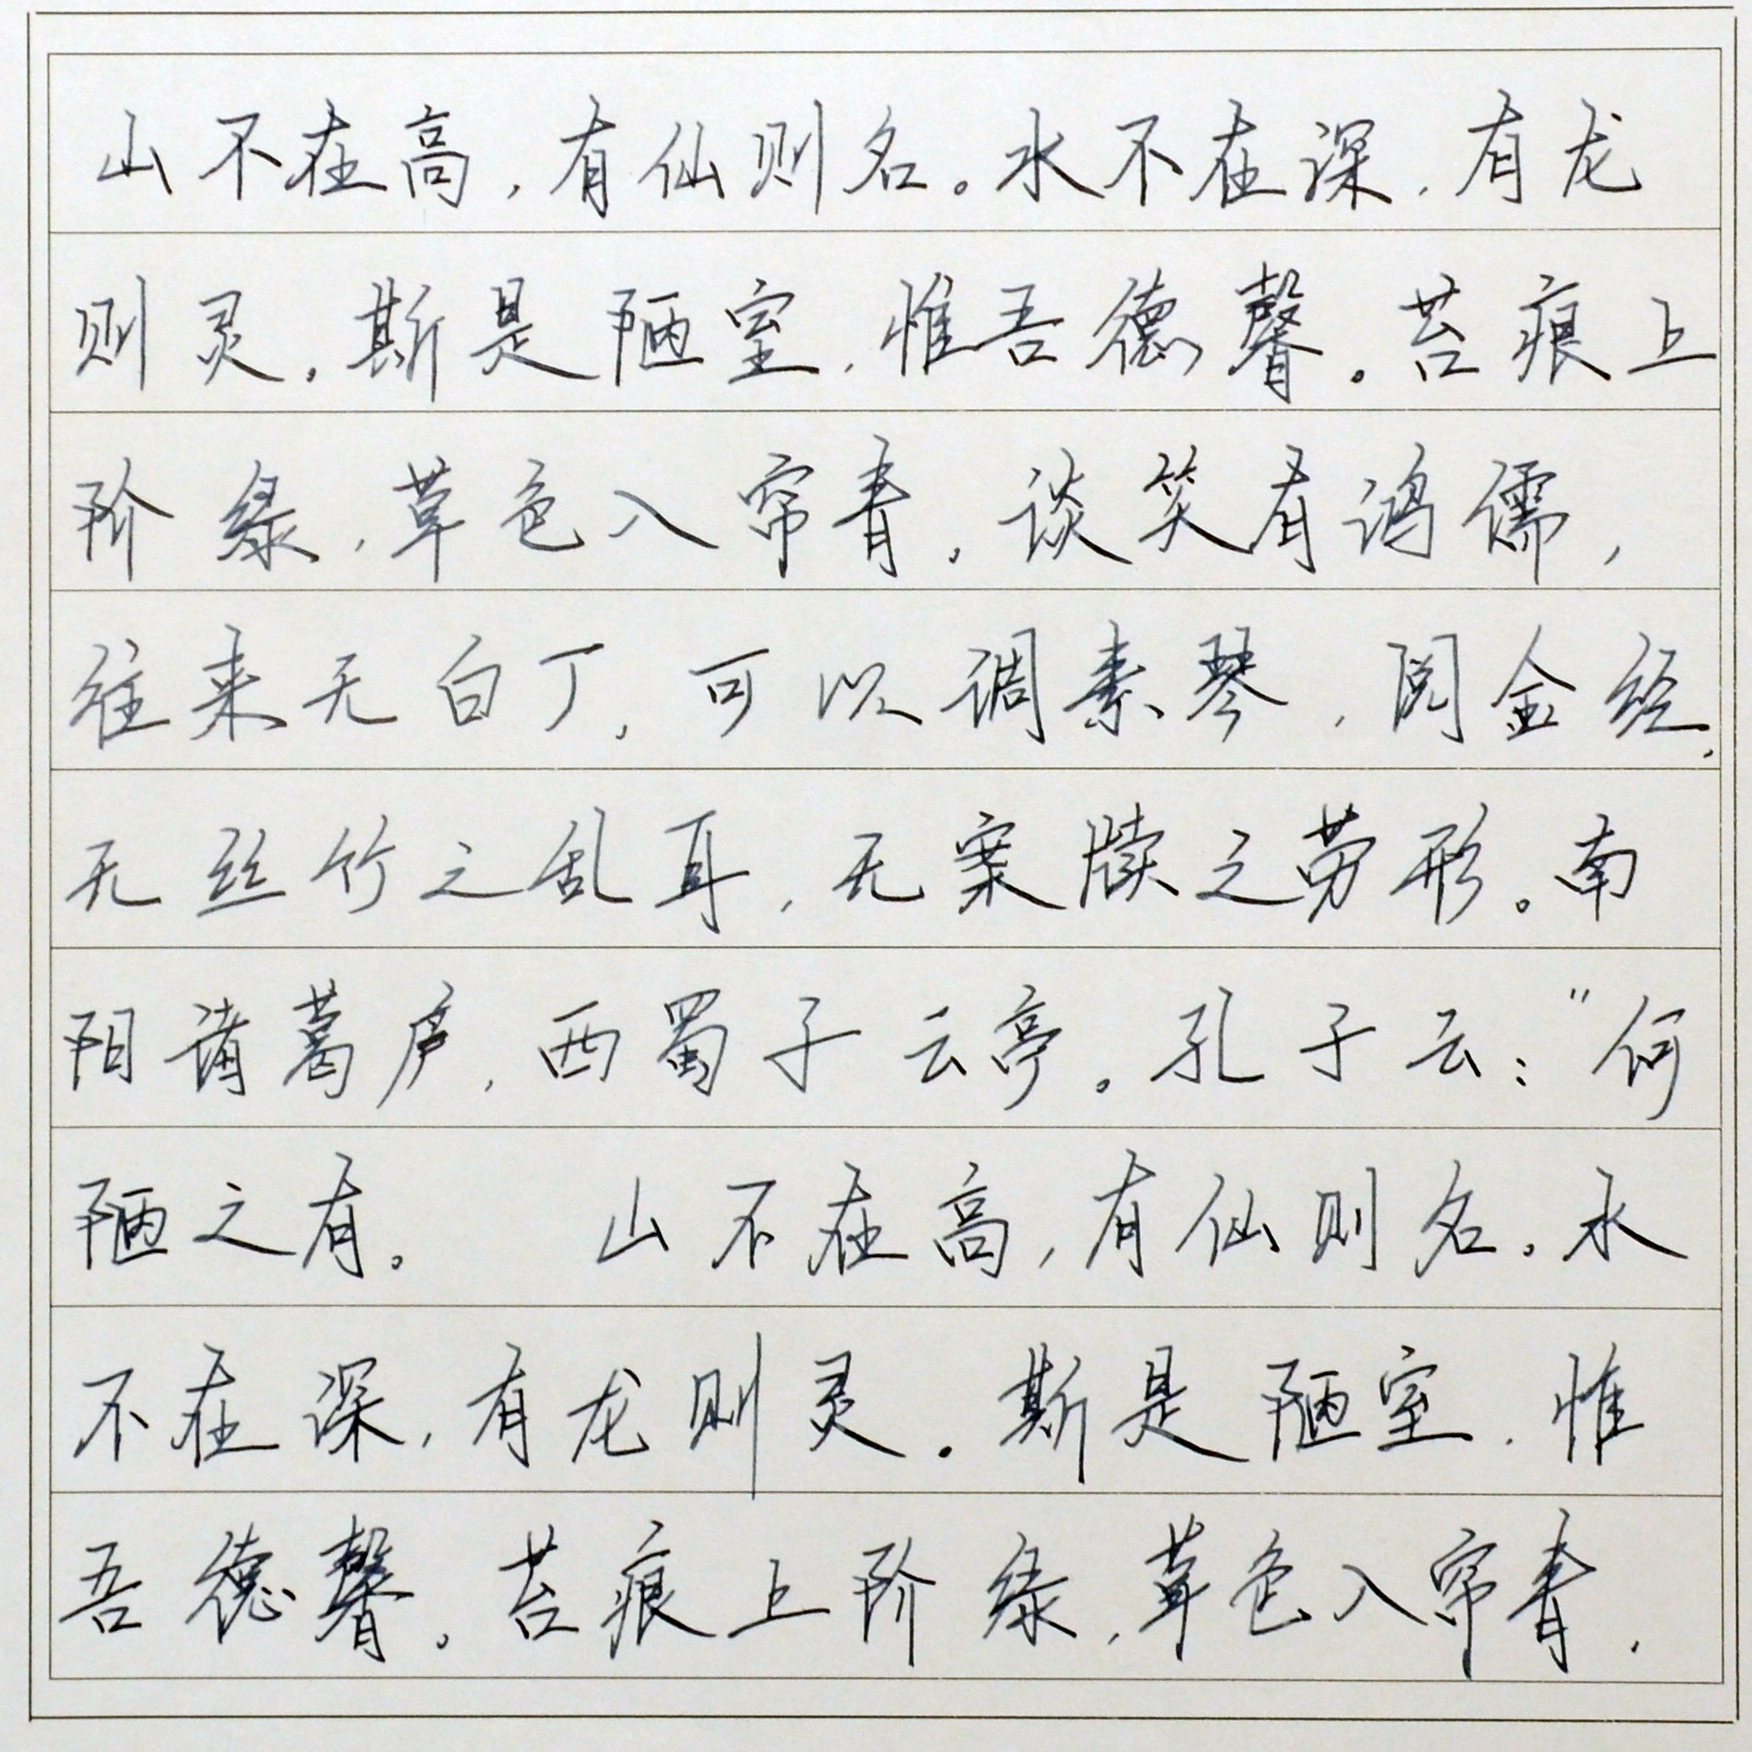 山不在高，有仙则名。水不在深，有龙
则灵。斯是陋室，惟吾德馨。苔痕上
阶绿，草色入帘青，谈笑有鸿儒，
往来无白丁，可以调素琴，阅金经，
无丝竹之乱耳，无案牍之劳形。南
阳诸葛庐，西蜀子云亭。孔子云：“何
陋之有。 山不在高，有仙则名。水
不在深，有龙则灵。斯是陋室，惟
吾德馨。苔痕上阶绿，草色入帘青，